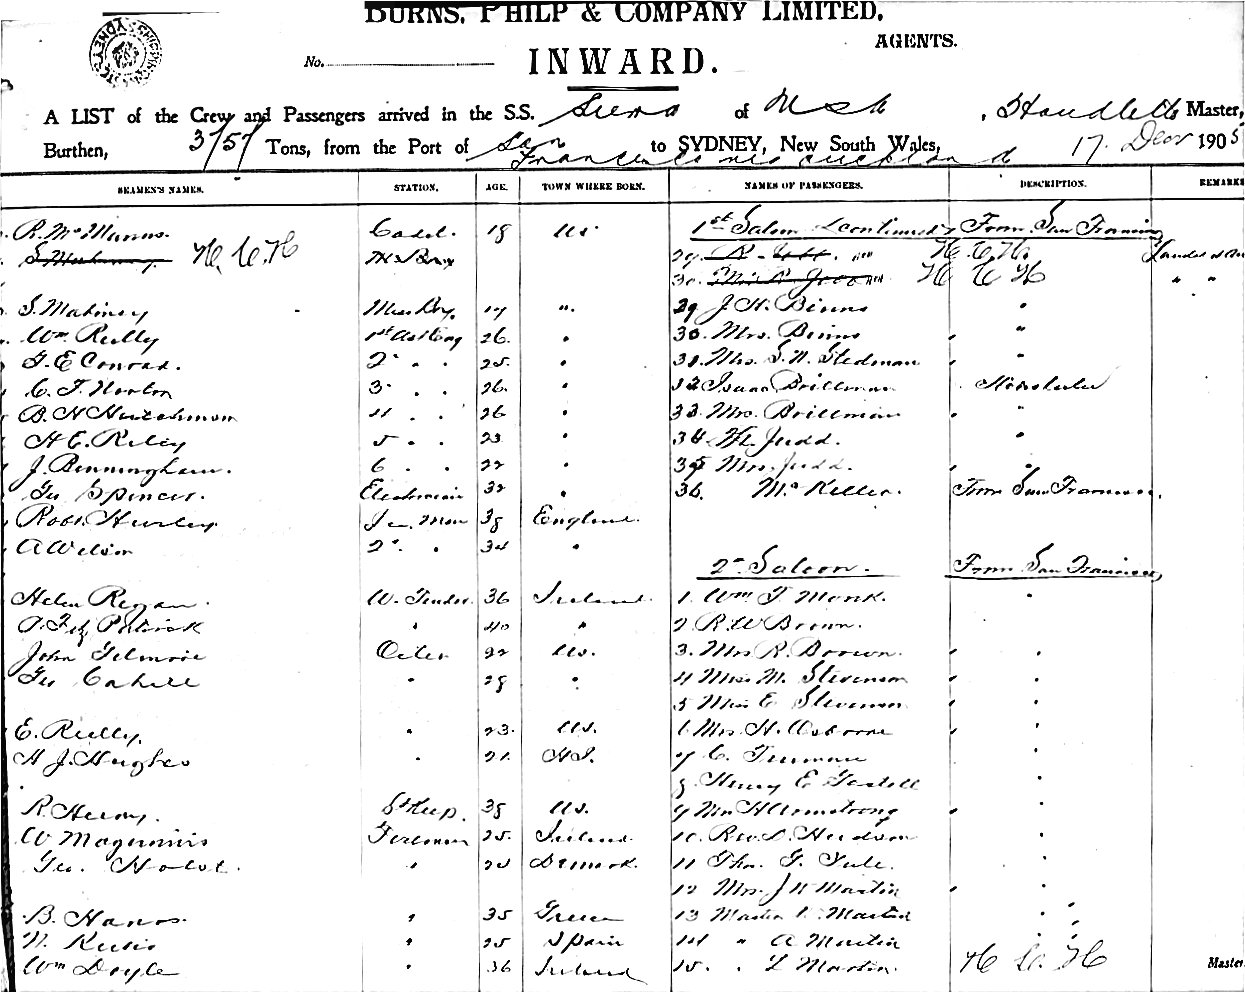 BURNS, PHILP & COMPANY LIMITED,
AGENTS.
No.
INWARD.
A LIST of the Crew and Passengers arrived in the S.S. Sierra of U S A, Houdlette Master,
Burthen, 3151 Tons, from the Port of San Francisco via Auckland to SYDNEY, New South Wales, 17 Decr 1905
SEAMEN'S NAMES. STATION. AGE. TOWN WHERE BORN. NAMES OF PASSENGERS. DESCRIPTION. REMARKS
R. McManus. Cadet. 18 US. 1st Saloon (continued) From San Francisco
H.C.H Ms Boy 29 R. H.C.H. Landed at
30 Mrs R. H C H " "
S. Mahoney Mess Boy. 17 " 29 J. H. Binns "
Wm Reilly 1st Ast Eng 26. " 30. Mrs. Binns "
G. E Conrad. 2 " " 25. " 31. Mrs. S. W. Stedman "
C. F. Horton 3 " " 26. " 32 Isaac Brillman Honolulu
B. H Hutchinson 4 " " 26 " 33. Mrs. Brillman "
H E. Riley 5 " " 23 " 34 H. Judd. "
J. Benningham. 6 " " 22 " 35 Mrs. Judd. "
Geo Spencer. Electrician 32 " 36. McKeller. From San Francisco.
Robt. Hurley Jn. Man 38 England.
A Wilson 2d. " 34 "
2d Saloon. From San Francisco
Helen Regan. W. Tender 36 Ireland. 1. Wm. T. Monk. "
Fitz Patrick " 40 " 2 R. W Brown.
John Gilmore Oiler 22 US. 3. Mrs R. Brown. "
Geo Cahill " 28 " 4 Miss M. Stevenson "
5 Miss E Stevenson "
E. Reilly. " 23. US. 6. Mrs. H. Osborne "
H J. Hughes " 21. 7 C. Truman "
8. Henry E. "
R. Henry. S Keep. 38 US. 9 Mrs H Armstrong "
W Maginnis Fireman 25. Ireland. 10. Rev. D. Hudson "
Geo. Nobel. " 24 Denmark. 11 Thos. G. Tule. "
12 Mrs. J W Martin "
B. Hanos. " 35 Greece 13 Master V. Martin "
N. " 25 Spain 14 " A Martin "
Wm Doyle " 36 Ireland 15. " L Martin. H. C. H
Master.